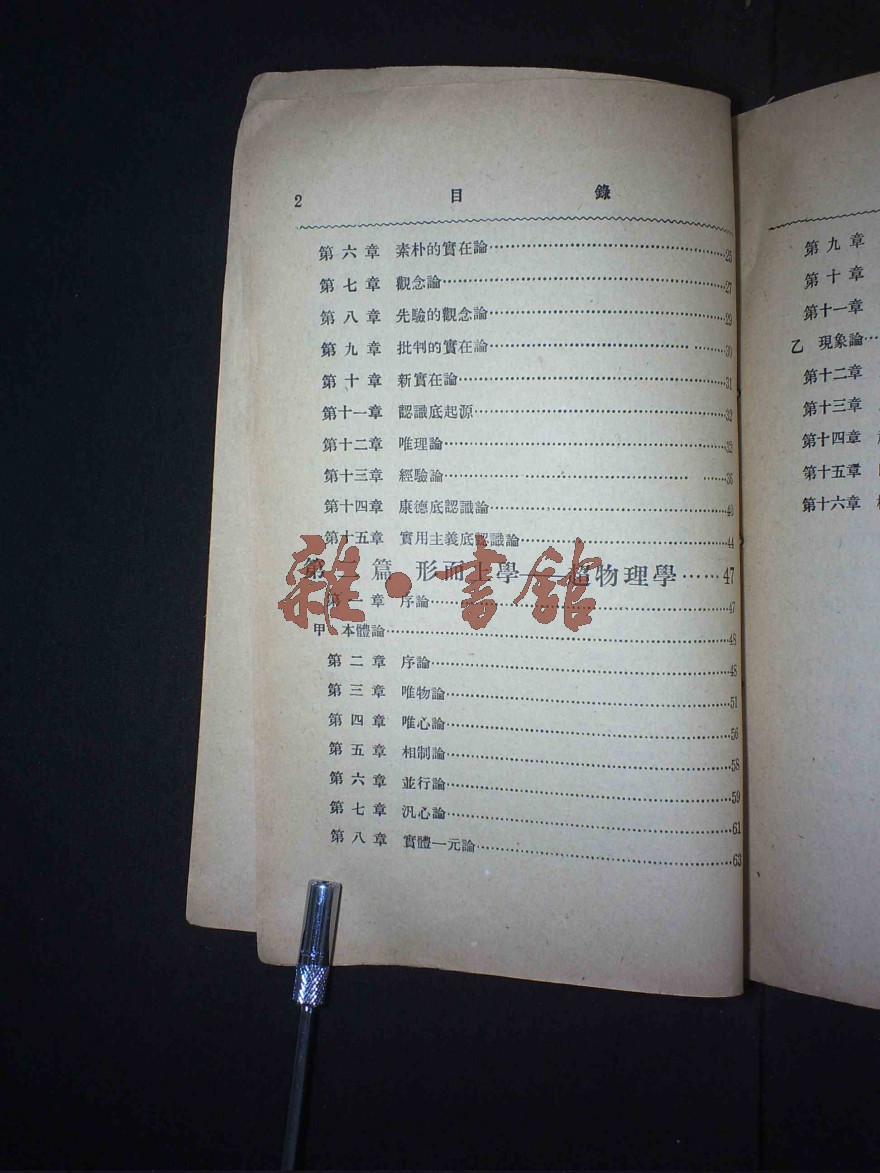 2 目 錄
第六章 素朴的實在論……25
第七章 觀念論……27
第八章 先驗的觀念論……29
第九章 批判的實在論……30
第十章 新實在論……31
第十一章 認識底起源……32
第十二章 唯理論……32
第十三章 經驗論……36
第十四章 康德底認識論……40
第十五章 實用主義底認識論……44
第二篇 形而上學——超物理學……47
第一章 序論……47
甲 本體論……48
第二章 序論……48
第三章 唯物論……51
第四章 唯心論……56
第五章 相制論……58
第六章 並行論……59
第七章 汎心論……61
第八章 實體一元論……63
雜·書館
第九章
第十章
第十一章
乙 現象論…
第十二章
第十三章
第十四章
第十五章
第十六章